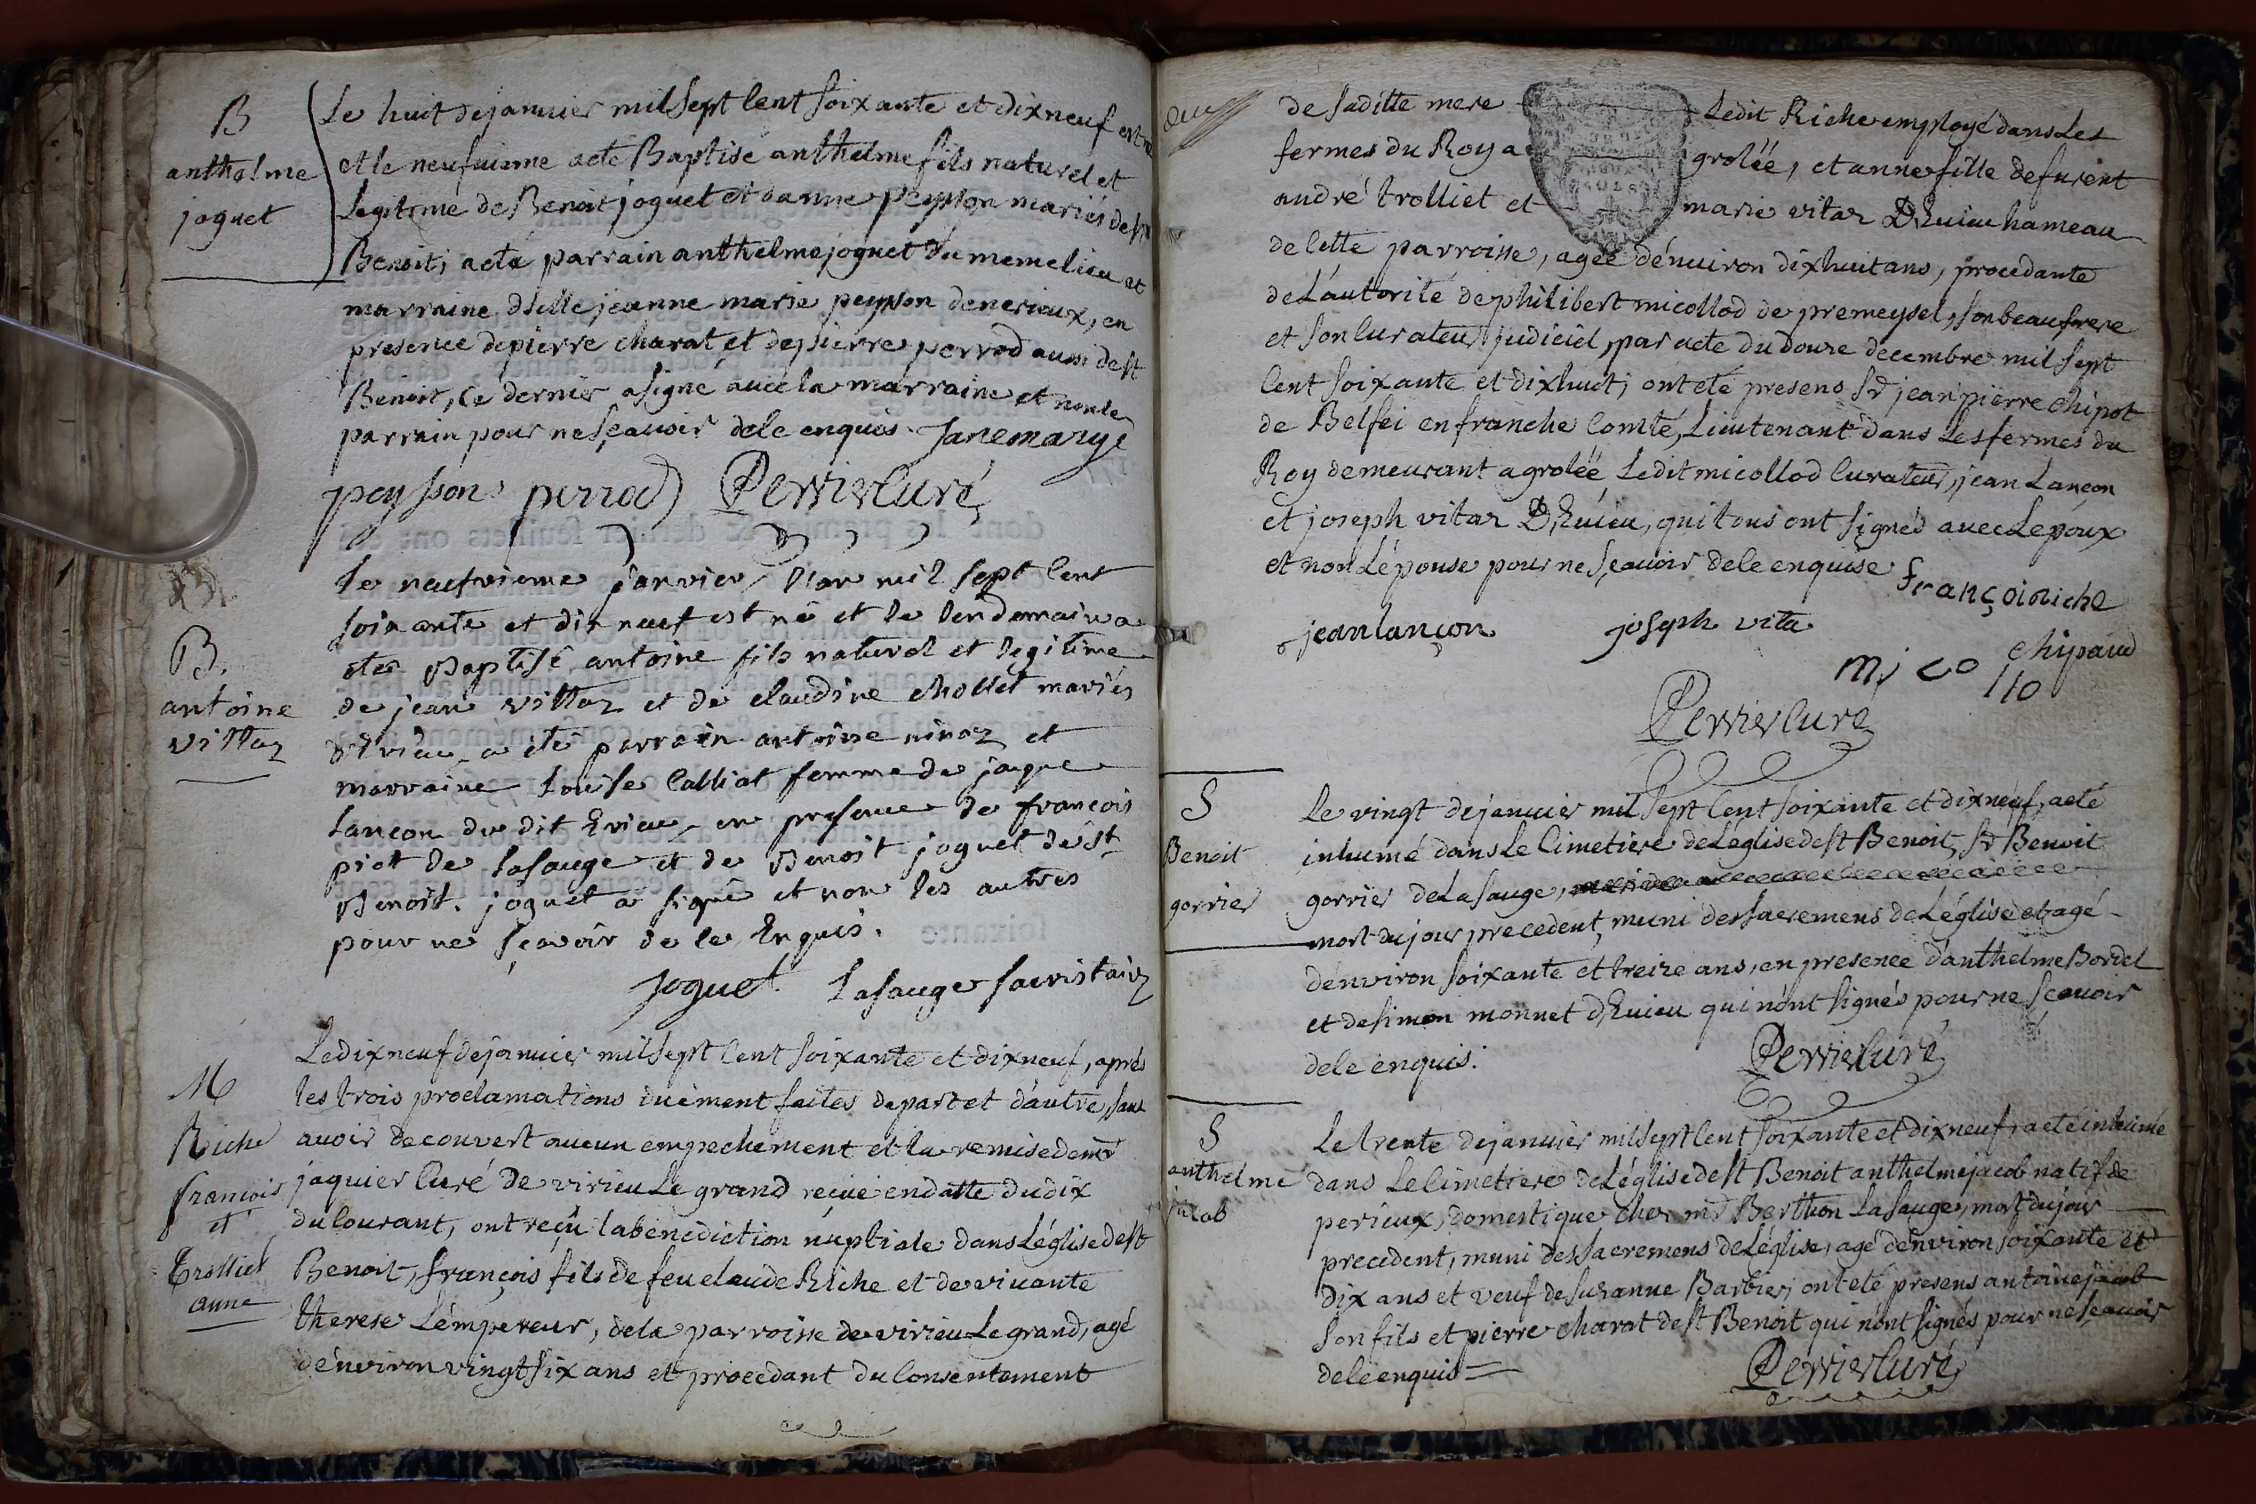 B
anthelme
joguet
Le huit de janvier mil sept cent soixante et dixneuf est né
et le neufvieme a eté Baptisé anthelme fils naturel et
Legitime de Benoit joguet et d'anne peysson mariés de st
Benoit, a eté parrain anthelme joguet du meme lieu et
marraine dlle jeanne marie peysson de nerieux, en
presence de pierre charat et de pierre perrod aussi de st
Benoit, ce dernier a signé avec la marraine et non le
parrain pour ne sçavoir de ce enquis. Jane marye
peysson perrod Perrier curé
B.
antoine
vittoz
le neufvieme janvier l'an mil sept cent
soixante et dix neuf est né et le lendemain a
eté Baptisé antoine fils naturel et legitime
de jean vittoz et de claudine chollet mariés
d'Evieu, a eté parrain antoine ninoz et
marraine Louise Calliat femme de jaque
Lançon du dit Evieu, en presence de françois
piot de Lasauge et de Benoit joguet de st
Benoit. joguet a signé et non les autres
pour ne sçavoir de ce Enquis.
joguet Lasauge sacristain
M
Riche
françois
et
Trolliet
anne
Le dixneuf de janvier mil sept cent soixante et dixneuf, après
les trois proclamations duëment faites de part et d'autre, sans
avoir decouvert aucun empechement et la remise de mr
jaquier Curé de virieu Le grand reçue en datte du dix
du courant, ont reçu la benediction nuptiale dans L'église de st
Benoit, françois fils de feu claude Riche et de vivante
therese L'émpereur, de la parroisse de virieu Le grand, agé
d'énviron vingt six ans et procedant du consentement
de sa ditte mere Ledit Riche employé dans Les
fermes du Roy a grolée, et anne fille de furent
andré trolliet et marie vitoz D'Evieu hameau
de cette parroisse, agée d'énviron dixhuit ans, procedante
de L'autorité de philibert micollod de premeysel, son beaufrere
et son curateur judiciel, par acte du douze decembre mil sept
cent soixante et dixhuit; ont eté presens sr jean pierre chipot
de Belfei en franche Comté, Lieutenant dans Les fermes du
Roy demeurant a grolée Ledit micollod Curateur, jean Lançon
et joseph vitoz D'Evieu, qui tous ont signés avec Lepoux
et non L'épouse pour ne sçavoir de ce enquise
françoi riche
jean lançon joseph vita
chipaud
mico llo
Perrier curé
S
Benoit
gorrier
Le vingt de janvier mil sept cent soixante et dixneuf, a eté
inhumé dans Le Cimetiere de L'eglise de st Benoit, sr Benoit
gorrier de Lasauge,
mort du jour precedent, muni des sacremens de L'église et agé
d'énviron soixante et treize ans, en presence d'anthelme Bordel
et de simon monnet d'Evieu qui n'ont signés pour ne sçavoir
de ce enquis.
Perrier curé
S
anthelme
jacob
Le trente de janvier mil sept cent soixante et dixneuf, a eté inhumé
dans Le Cimetiere de L'église de st Benoit anthelme jacob natif de
perieux, domestique chez mr Berthon Lasauge, mort du jour
precedent, muni des sacremens de L'église, agé d'énviron soixante et
dix ans et veuf de suzanne Barbier; ont eté presens antoine jacob
son fils et pierre charat de st Benoit qui n'ont signés pour ne sçavoir
de ce enquis
Perrier curé